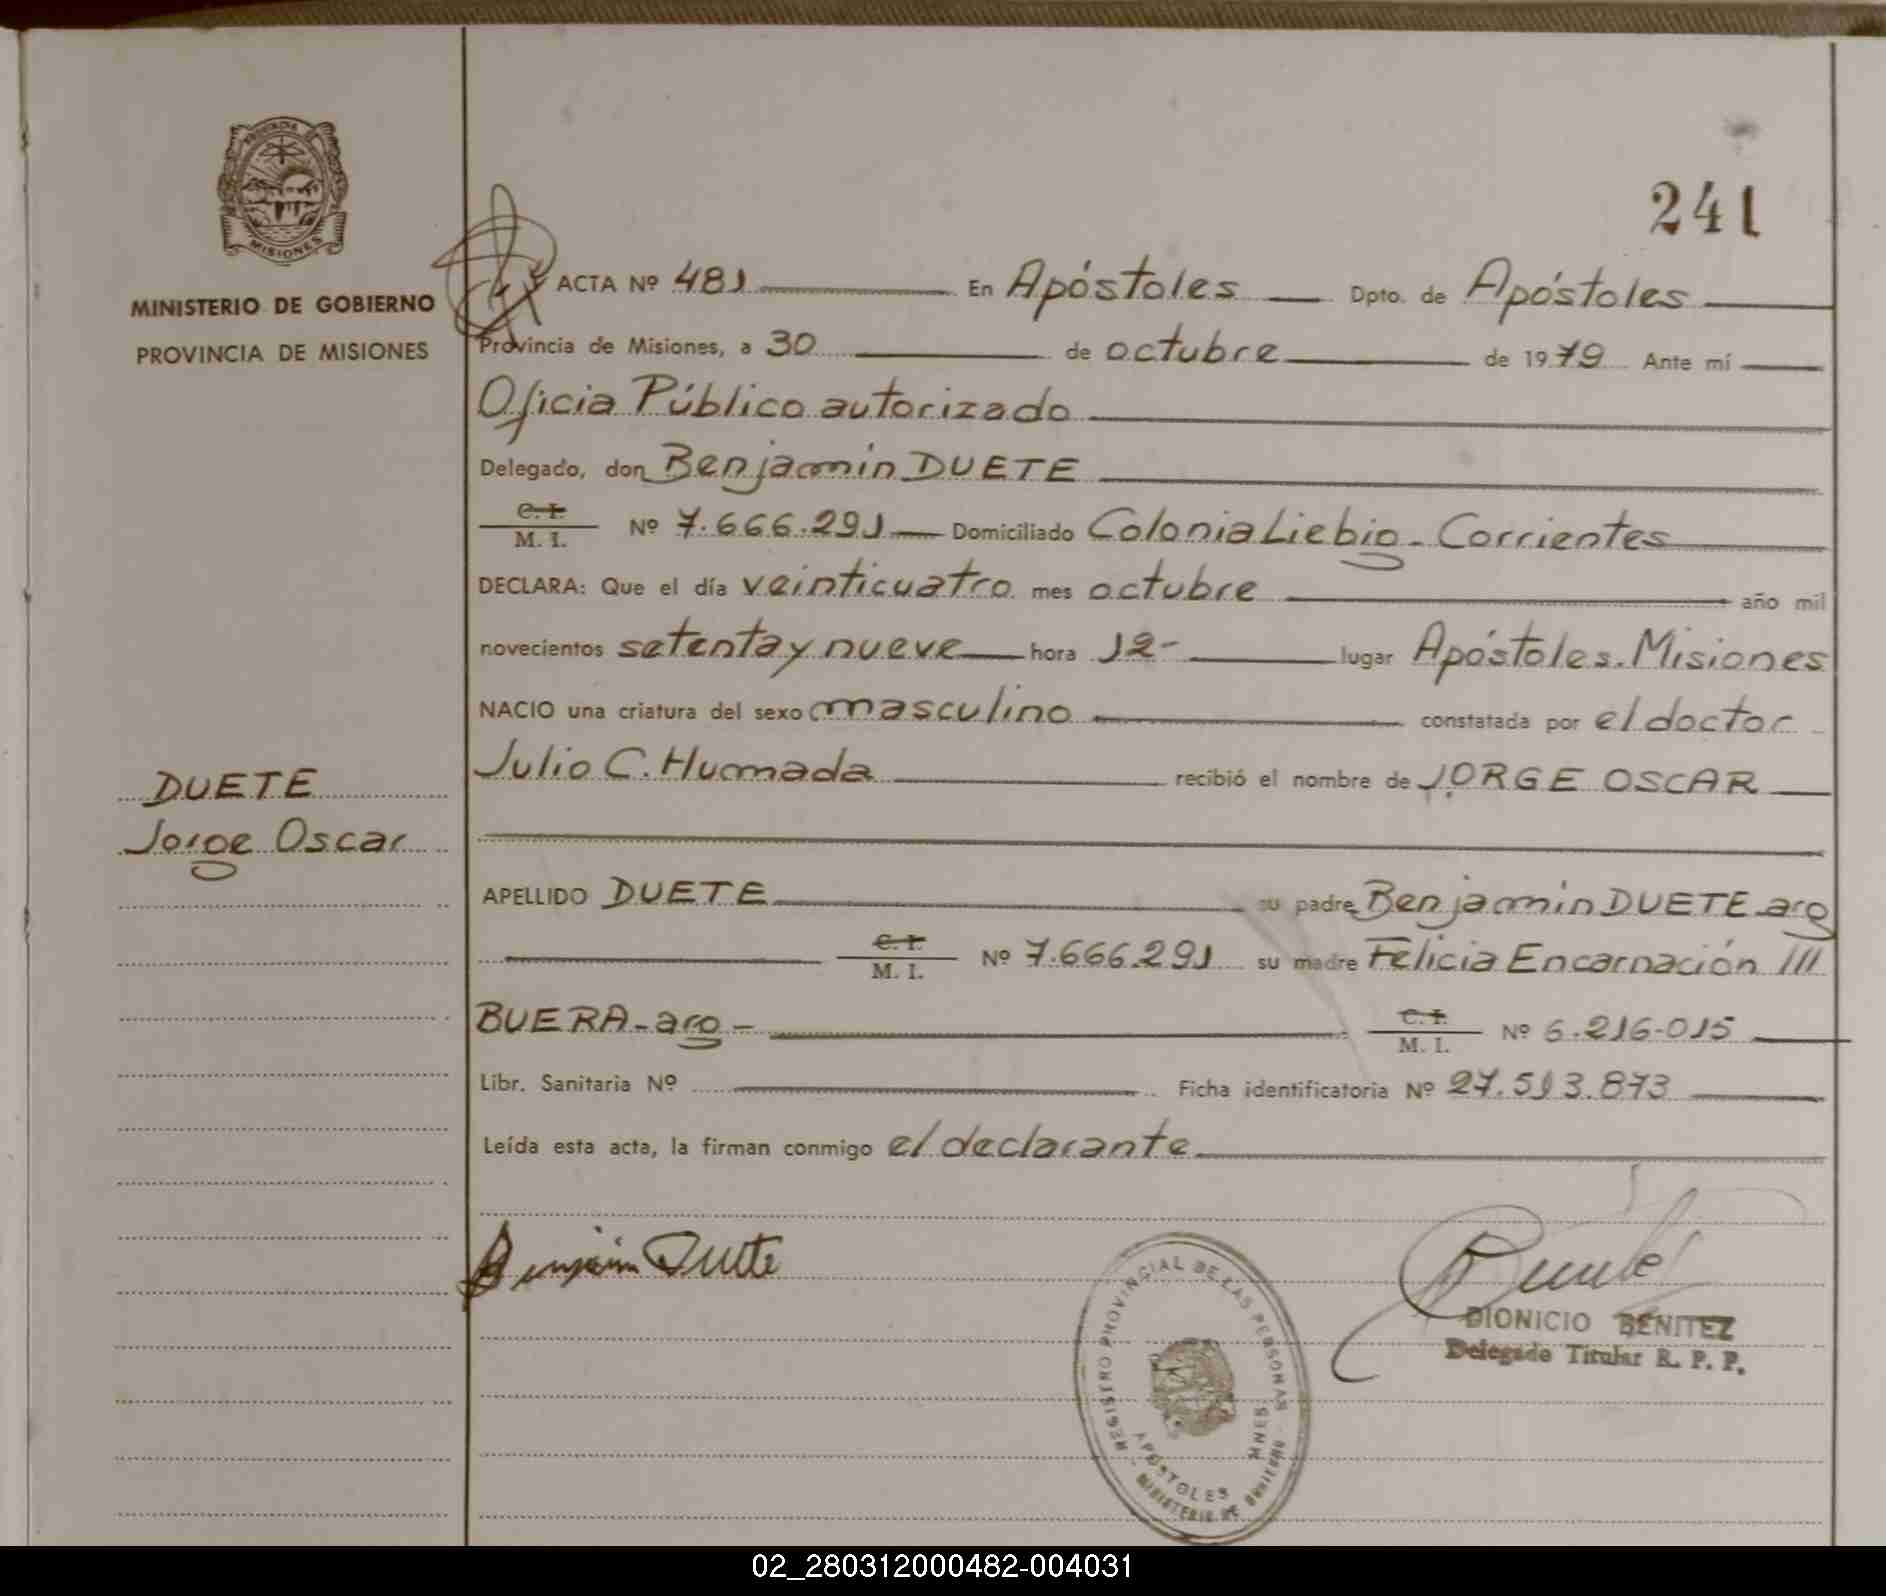 241
PROVINCIA
MISIONES
MINISTERIO DE GOBIERNO
PROVINCIA DE MISIONES
DUETE
Jorge Oscar
ACTA Nº 481 En Apóstoles Dpto. de Apóstoles
Provincia de Misiones, a 30 de octubre de 1979 Ante mí
Oficia Público autorizado
Delegado, don Benjamin DUETE
C. I.
M. I. Nº 7.666.291 Domiciliado Colonia Liebig - Corrientes
DECLARA: Que el día veinticuatro mes octubre año mil
novecientos setenta y nueve hora 12- lugar Apóstoles. Misiones
NACIO una criatura del sexo masculino constatada por el doctor
Julio C. Humada recibió el nombre de JORGE OSCAR
APELLIDO DUETE su padre Benjamin DUETE arg
C. I.
M. I. Nº 7.666.291 su madre Felicia Encarnación
BUERA - arg - C. I.
M. I. Nº 6.216.015
Libr. Sanitaria Nº Ficha identificatoria Nº 27.513.873
Leída esta acta, la firman conmigo el declarante
Benjamin Duete
DIONICIO BENITEZ
Delegado Titular R. P. P.
REGISTRO PROVINCIAL DE LAS PERSONAS
APOSTOLES MNES
MINISTERIO DE GOBIERNO
02_280312000482-004031